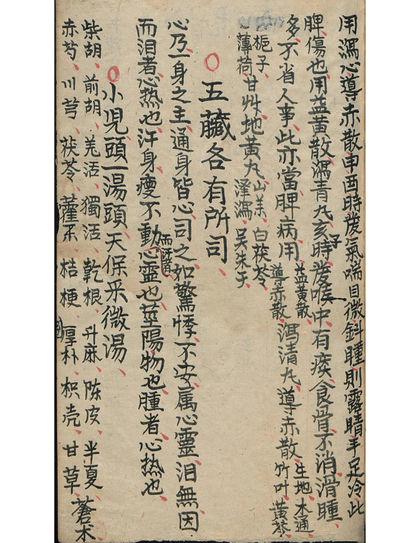 用瀉心導赤散申酉時發氣喘目微斜睡則露睛手足冷此
脾傷也用益黃散瀉青丸亥時發喉中有痰食骨不消滑腫
多不省人事此亦當脾病用益黃散導赤散瀉清丸導赤散生地木通竹叶黃芩
梔子薄荷甘艸地黃丸山茱澤瀉白茯苓吳朱于
五臟各有所司
心乃一身之主通身皆心司之如驚悸不安屬心靈泪無因
而泪者心熱也汗身瘦不動心靈也莖陽物也腫者心熱也
小児頭一湯頭天保采微湯
柴胡前胡羌活獨活乾根升麻陳皮半夏蒼术
赤芍川芎茯苓藿系桔梗厚朴枳壳甘草